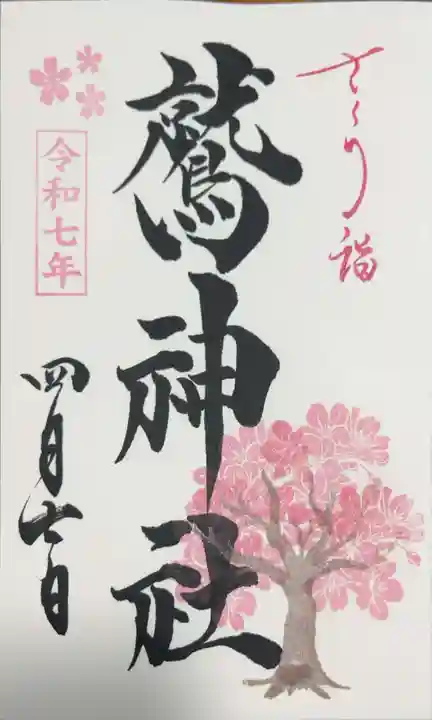 さくら詣
鷲神社
令和七年
四月日